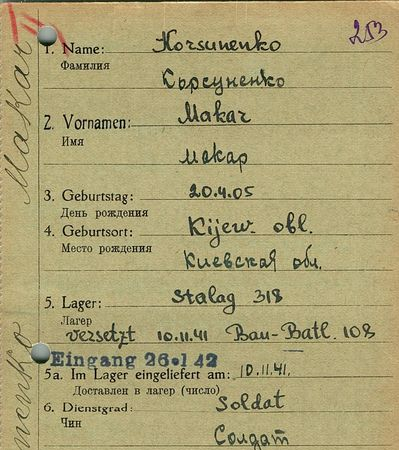 253
II
Makar
1. Name: Korsunenko
Фамилия
Кърсуненко
2. Vornamen: Makar
Имя
макар
3. Geburtstag: 20.4.05
День рождения
4. Geburtsort: Kijew. obl.
Место рождения
Киевская обл.
5. Lager: Stalag 318
Лагерь
versetzt 10.11.41 Bau-Batl. 108
Eingang 26.1.42
5a. Im Lager eingeliefert am: 10.11.41.
Доставлен в лагерь (число)
6. Dienstgrad: Soldat
Чин
Солдат
nenko